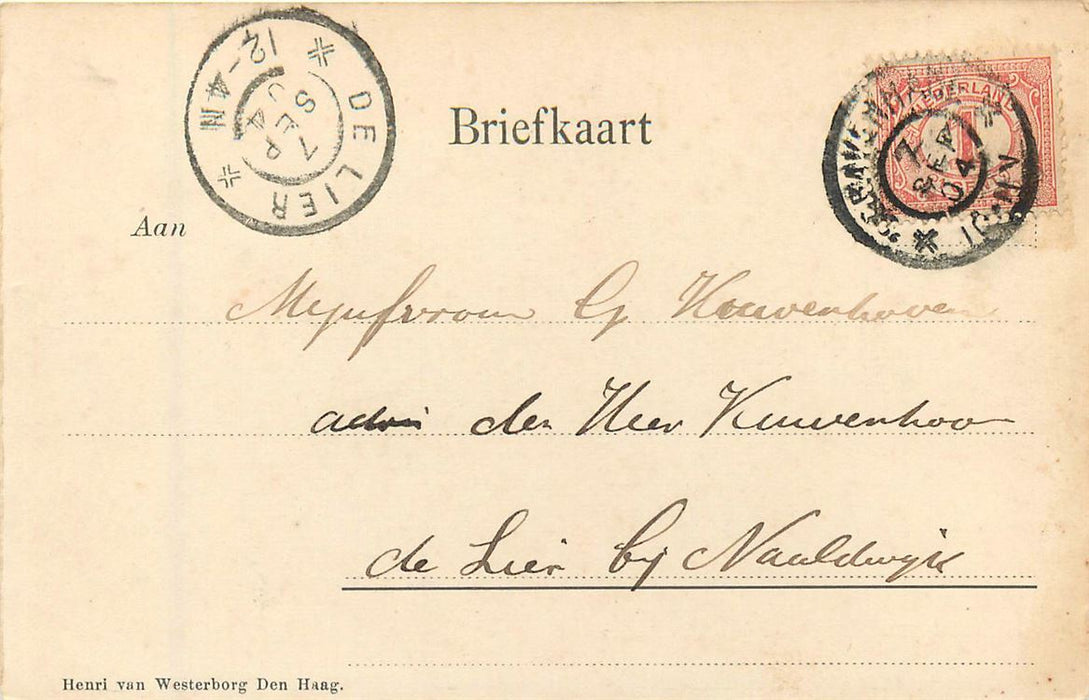 DE LIER
12-4 N
7 SEP 04
NEDERLAND
1
7 SEP 04
Briefkaart
Aan
Mejufvrouw G Kouwenhoven
adres den Heer Kouwenhoven
de Lier bij Naaldwijk
Henri van Westerborg Den Haag.